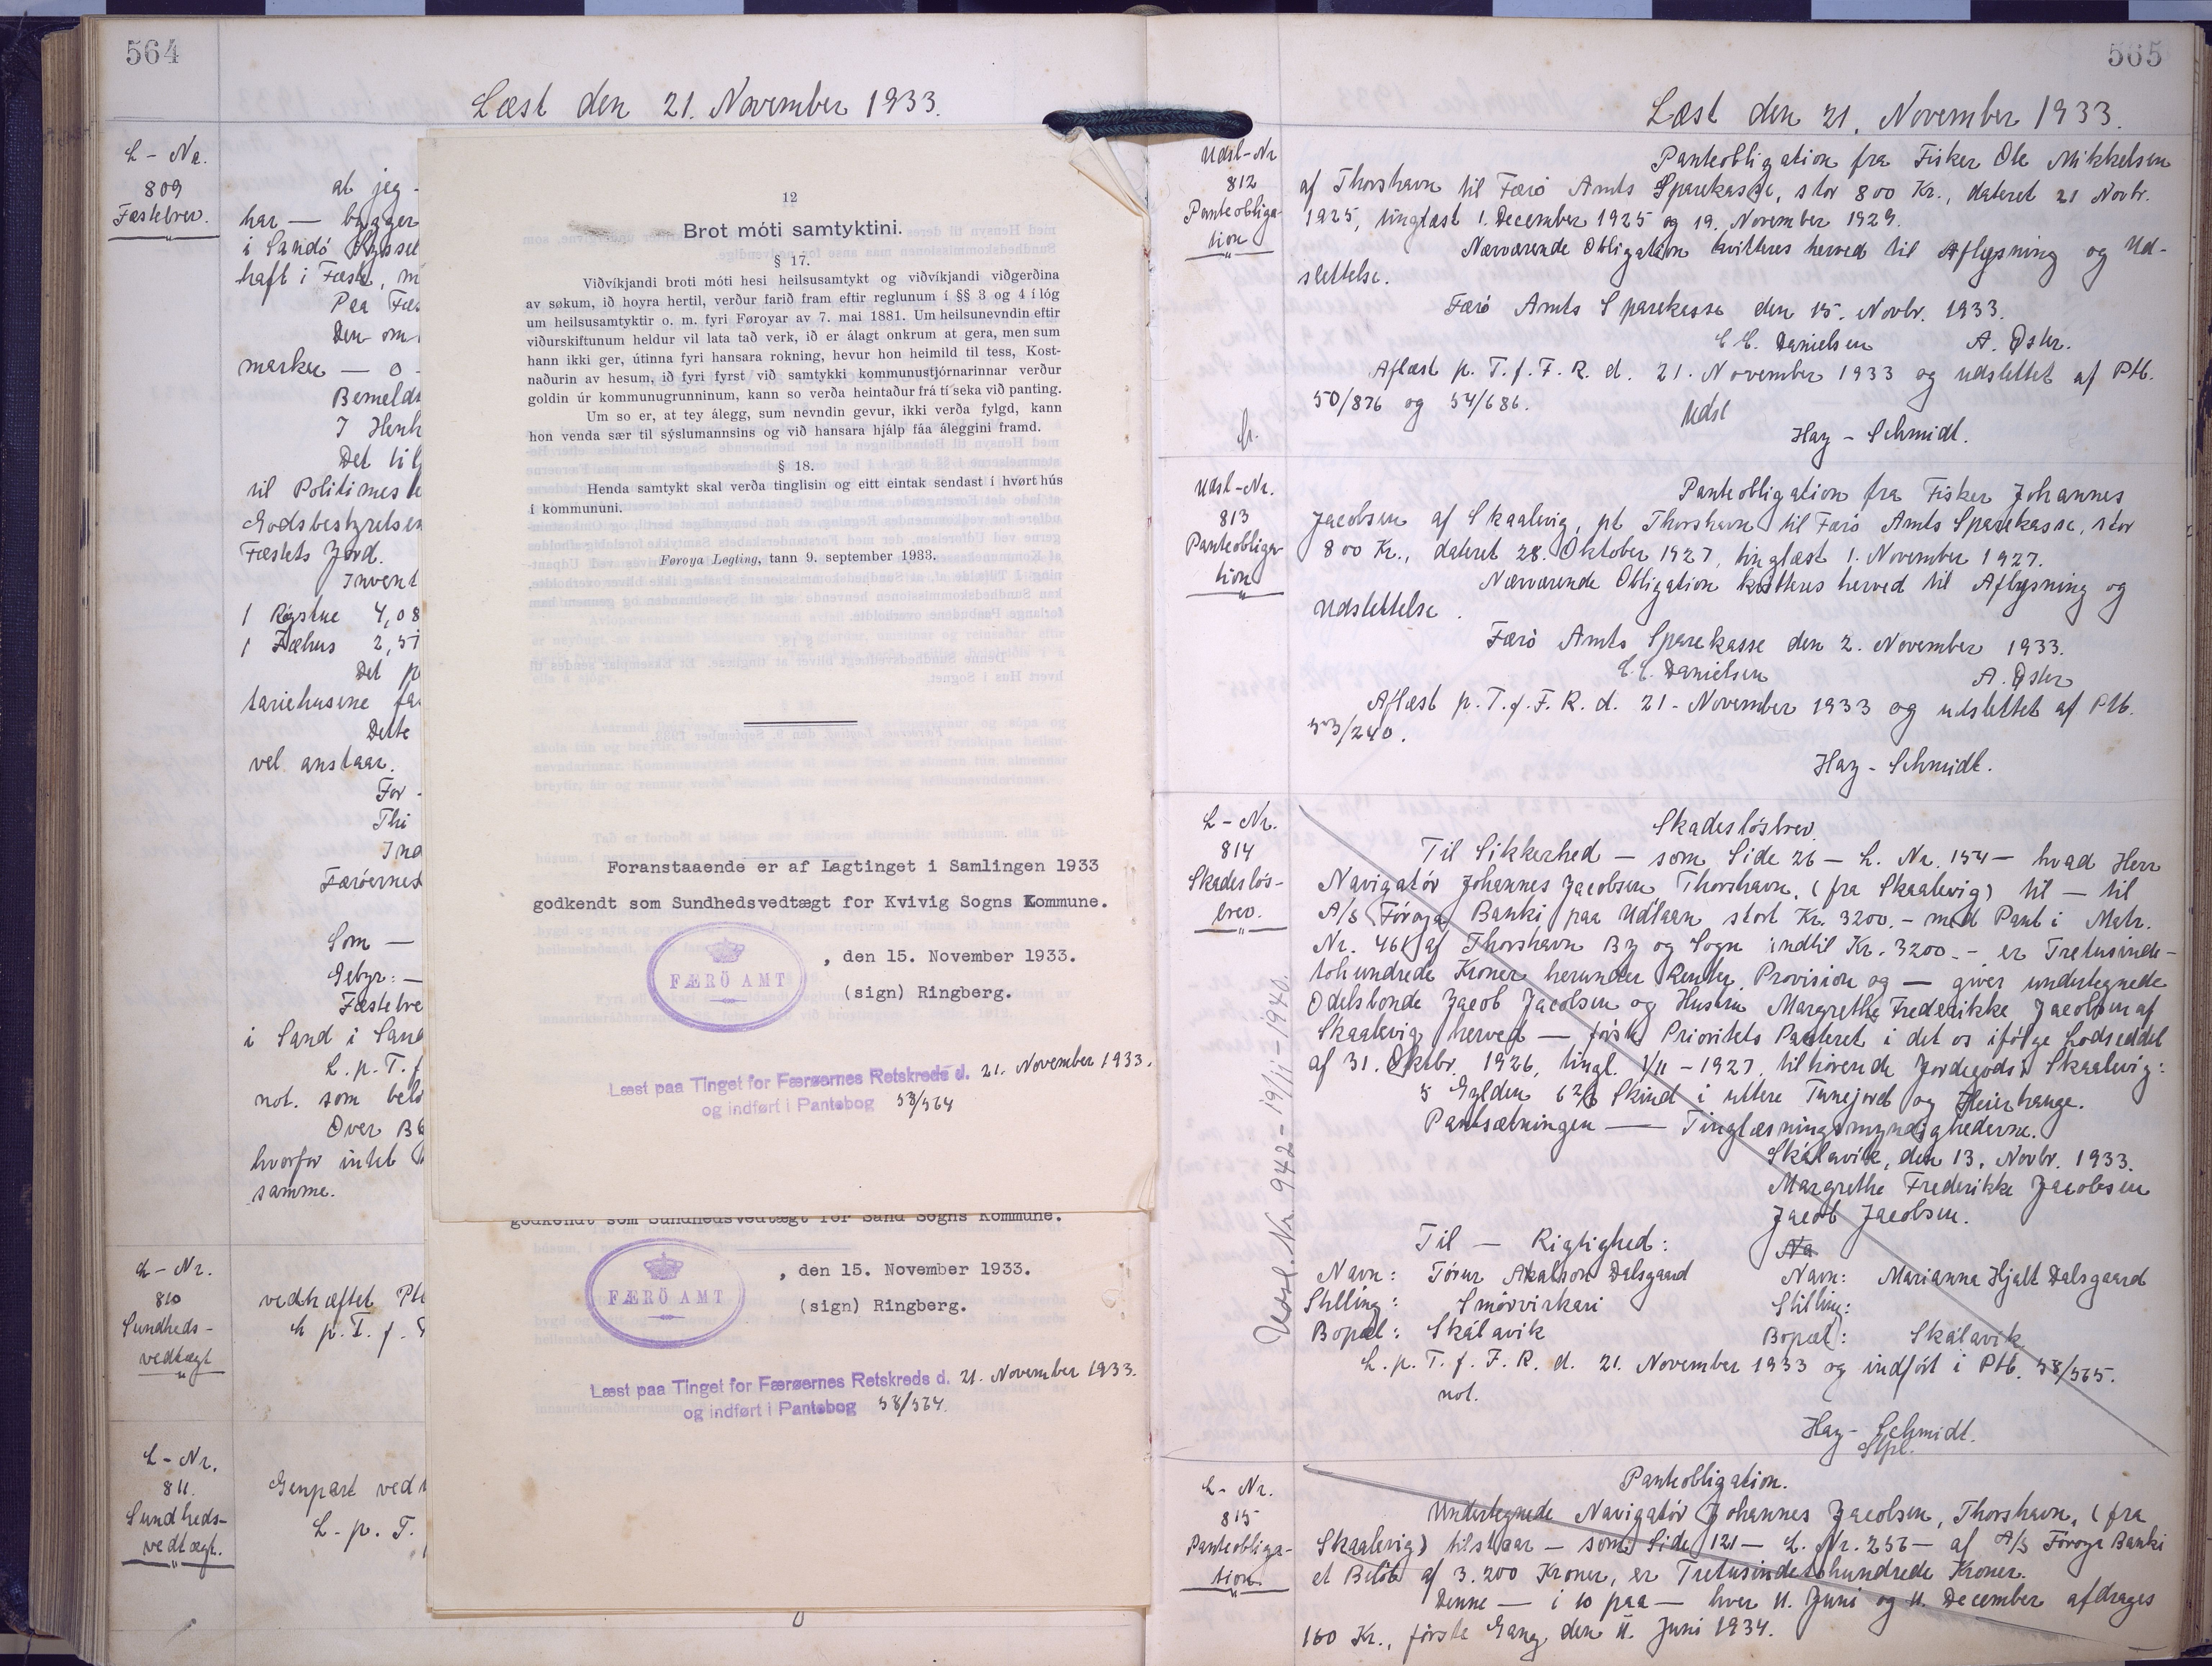 564
Læst den 21. November 1933.
L - Nr.
809
Fæstebrev.
at jeg -
har — bygger
i Sandö Syssel
haft i Fæste, m
Paa Fæs
Den om
marker — o -
Bemeldt
I Henh
Det til
til Politimeste
Godsbestyrelsen
Fæstets Jord.
Invent
1 Røgstue 4,08
1 Fæhus 2,51
Det p
tariehusene fa
Dette
vel anstaar.
For -
Thi
Ind
Færöernes
Som —
Gebyr: —
Fæstebre
i Sand i Sand
L. p. T. f
not. som belö
Over B
hvorfor intet
samme.
L - Nr.
810
Sundheds-
vedtægt
vedhæftet Ptb
L. p. T. f.
L - Nr.
811.
Sundheds-
vedtægt.
Genpart ved
L. p. T.
12
Brot móti samtyktini.
§ 17.
Viðvíkjandi broti móti hesi heilsusamtykt og viðvíkjandi viðgerðina
av søkum, ið hoyra hertil, verður farið fram eftir reglunum í §§ 3 og 4 í lóg
um heilsusamtyktir o. m. fyri Føroyar av 7. mai 1881. Um heilsunevndin eftir
viðurskiftunum heldur vil lata tað verk, ið er álagt onkrum at gera, men sum
hann ikki ger, útinna fyri hansara rokning, hevur hon heimild til tess, Kost-
naðurin av hesum, ið fyri fyrst við samtykki kommunustjórnarinnar verður
goldin úr kommunugrunninum, kann so verða heintaður frá tí seka við panting.
Um so er, at tey álegg, sum nevndin gevur, ikki verða fylgd, kann
hon venda sær til sýslumannsins og við hansara hjálp fáa áleggini framd.
§ 18.
Henda samtykt skal verða tinglisin og eitt eintak sendast í hvørt hús
í kommununi.
Føroya Løgting, tann 9. september 1933.
Foranstaaende er af Lagtinget i Samlingen 1933
godkendt som Sundhedsvedtægt for Kvivig Sogns Kommune.
FÆRÖ AMT
, den 15. November 1933.
(sign) Ringberg.
Læst paa Tinget for Færøernes Retskreds d. 21. November 1933.
og indført i Pantebog 58/564
godkendt som Sundhedsvedtægt for Sand Sogns Kommune.
FÆRÖ AMT
, den 15. November 1933.
(sign) Ringberg.
Læst paa Tinget for Færøernes Retskreds d. 21. November 1933.
og indført i Pantebog 58/564.
565
Læst den 21. November 1933.
Udsl-Nr
812
Panteobliga-
tion
Panteobligation fra Fisker Ole Mikkelsen
af Thorshavn til Færö Amts Sparekasse, stor 800 Kr., dateret 21 Novbr.
1925, tinglæst 1. December 1925 og 19. November 1929.
Nærværende Obligation kvitteres herved til Aflysning og Ud-
slettelse.
Færö Amts Sparekasse den 15. Novbr. 1933.
C. C. Danielsen A. Öster.
Aflæst p. T. f. F. R. d. 21. November 1933 og udslettet af Ptb.
50/876 og 54/686.
Udsl
Hay-Schmidt.
Udsl-Nr.
813
Panteobliga-
tion
Panteobligation fra Fisker Johannes
Jacobsen af Skaalevig, pt Thorshavn til Færö Amts Sparekasse, stor
800 Kr., dateret 28. Oktober 1927, tinglæst 1. November 1927.
Nærværende Obligation kvitteres herved til Aflysning og
Udslettelse.
Færö Amts Sparekasse den 2. November 1933.
C. C. Danielsen A. Öster
Aflæst p. T. f. F. R. d. 21. November 1933 og udslettet af Ptb.
53/240.
Hay-Schmidt.
L - Nr.
814
Skadeslös-
brev.
Skadeslösbrev.
Til Sikkerhed — som Side 26 — L. Nr. 154 — hvad Herr
Navigatör Johannes Jacobsen Thorshavn, (fra Skaalevig) til — til
A/S Föroya Banki paa Udlaan stort Kr. 3200.- med Pant i Matr.
Nr. 461 af Thorshavn By og Sogn indtil Kr. 3200.- er Tretusinde-
tohundrede Kroner herunder Renter, Provision og — giver undertegnede
Odelsbonde Jacob Jacobsen og Hustru Margrethe Frederikke Jacobsen af
Skaalevig herved — förste Prioritets Panteret i det os ifölge Lodseddel
af 31. Oktbr. 1926, tingl. 1/11 - 1927, tilhörende Jordegods i Skaalevig:
5 Gylden 6 2/3 Skind i uttere Tunejord og Heirhauge.
Pantsætningen — Tinglæsningsmyndighederne.
Skálavik, den 13. Novbr. 1933.
Margrethe Frederikke Jacobsen
Jacob Jacobsen.
Til — Rigtighed:
Na
Navn: Tórur Akalson Dalsgaard Navn: Marianna Hjalt Dalsgaard
Stilling: Smörvirkari Stilling:
Bopæl: Skálavik Bopæl: Skálavik
L. p. T. f. F. R. d. 21. November 1933 og indfört i Ptb. 58/565.
not.
Hay-Schmidt.
Stpl.
Udsl. Nr. 942 - 19/11 - 1940.
L - Nr.
815
Panteobliga-
tion
Panteobligation.
Undertegnede Navigatör Johannes Jacobsen, Thorshavn, (fra
Skaalevig) tilstaar — som Side 121 — L. Nr. 256 — af A/S Föroya Banki
et Belöb af 3.200 Kroner, er Tretusindetohundrede Kroner.
Denne — i 10 paa — hver 11. Juni og 11. December afdrages
160 Kr., förste Gang den 11. Juni 1934.